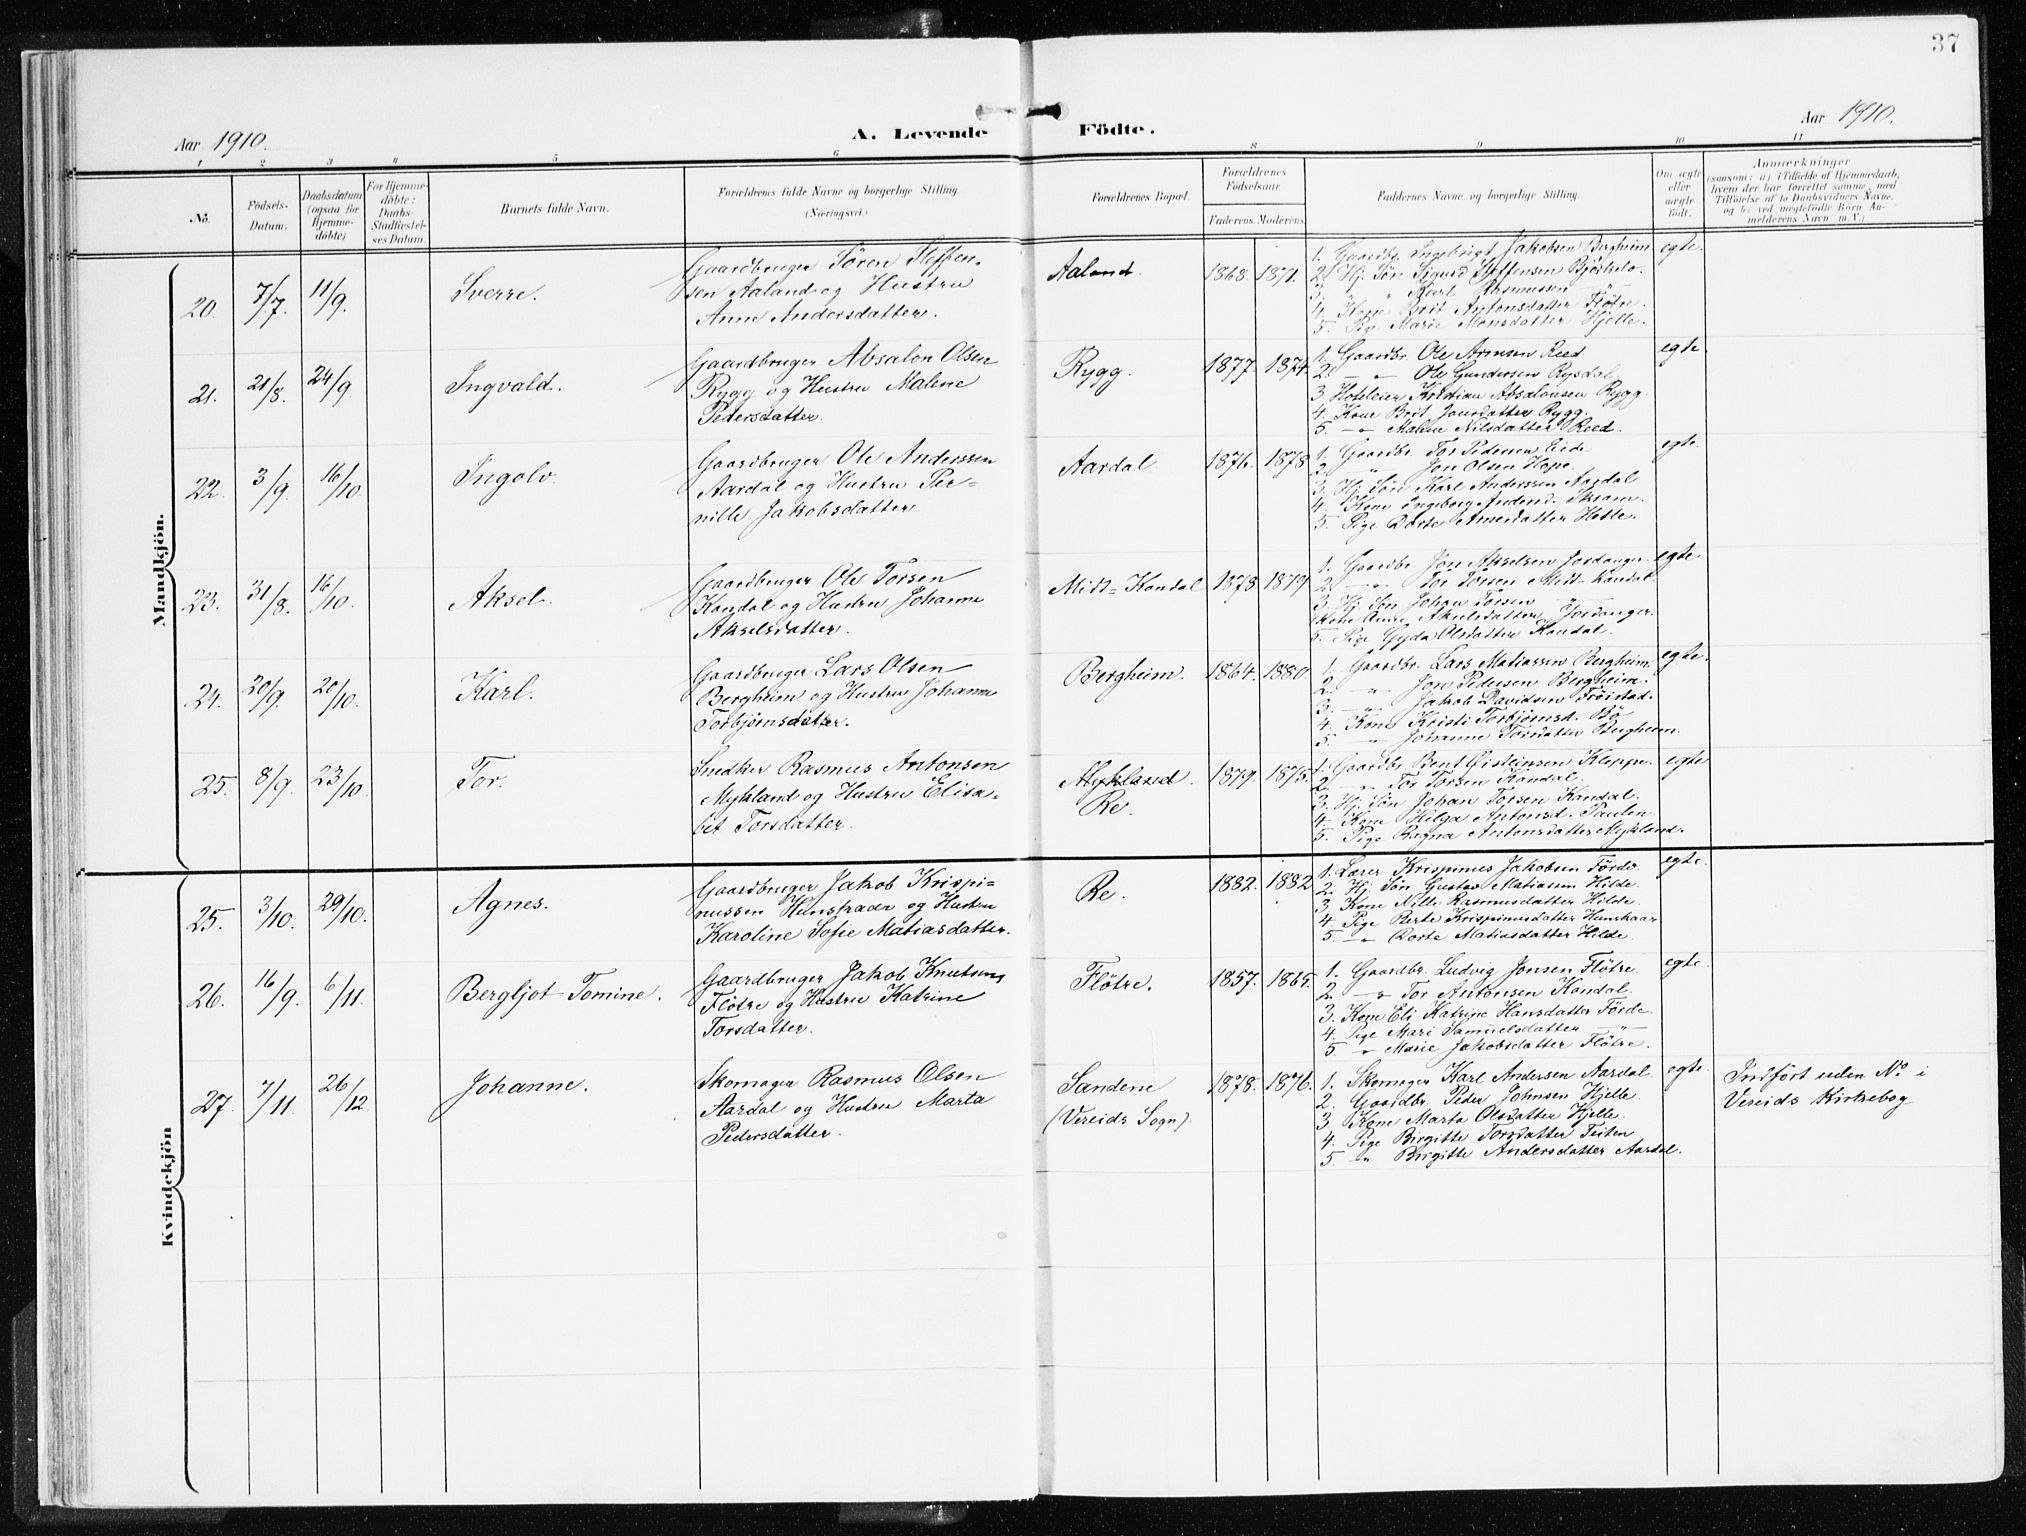 37
Aar 1910.
A. Levende Födte.
Aar 1910.
1 2 3 4 5 6 8 9 10 11
No.
Födsels-Datum.
Daabsdatum (ogsaa for Hjemme-döbte)
For Hjemme-döbte: Daabs-Stadfæstel-ses Datum
Barnets fulde Navn.
Forældrenes fulde Navne og borgerlige Stilling.
(Næringsvei.)
Forældrenes Bopæl.
Forældrenes Födselsaar.
Faderens. Moderens.
Faddernes Navne og borgerlige Stilling.
Om ægte eller uægte födt.
Anmærkninger
(saasom: a) i Tilfælde af Hjemmedaab,
hvem der har forrettet samme, med
Tilföielse af to Daabsvidners Navne,
og b) ved uægtefödte Börn An-
melderens Navn m. V.)
Mandkjön.
20. 7/7. 11/9. Sverre.
Gaardbruger Sören Steffen-
sen Aaland og Hustru
Anne Andersdatter.
Aaland. 1868. 1871.
1. Gaardbr. Ingebrigt Jakobsen Bergheim.
2. Hj. Søn Sigurd Steffensen Bjørkelo.
3. " " Karl Rasmussen — " —
4. Kone Brit Antonsdatter Fløtre.
5. Pige Marie Monsdatter Hjelle.
egte.
21. 21/8. 24/9. Ingvald.
Gaardbruger Absalon Olsen
Rygg og Hustru Malene
Pedersdatter.
Rygg. 1877. 1874.
1. Gaardbr. Ole Arnesen Reed
2. — " — Ole Gundersen Rysdal
3 Hoteleier Kristian Absalonsen Rygg.
4. Kone Brit Jonsdatter Rygg.
5. — " — Malene Nilsdatter Reed.
egte
22. 3/9. 16/10. Ingolv.
Gaardbruger Ole Anderssen
Aardal og Hustru Per-
nille Jakobsdatter.
Aardal 1876. 1878
1. Gaardbr. Tor Pedersen Eide
2. " Jon Olsen Hope.
3. Hj. Søn Karl Anderssen Aardal
4. Kone Ingeborg Andersd.
5. Pige Dorte Hetle.
egte.
23. 31/8. 16/10. Aksel.
Gaardbruger Ole Torsen
Kandal og Hustru Johanne
Akselsdatter.
Midt-Kandal 1878 1879
1. Gaardbr. Jon Akselsen Jordanger.
2. — " — Tor Torsen Midt-Kandal.
3. Hj. Søn Johan Torsen — " —
Kone Anne Akselsdatter Jordanger.
5. Pige Gyda Olsdatter Kandal.
egte
24. 20/9. 20/10. Karl.
Gaardbruger Lars Olsen
Bergheim og Hustru Johanne
Torbjørnsdatter.
Bergheim. 1864. 1880.
1. Gaardbr. Lars Matiassen Bergheim.
2. " Jon Pedersen Bergheim.
3. " Jakob Davidsen Frøistad.
4. Kone Kristi Torbjørnsd. Bø
5. " Johanne Torsdatter Bergheim.
egte.
25. 8/9. 23/10. Tor.
Snedker Rasmus Antonsen
Mykland og Hustru Elisa-
bet Torsdatter.
Mykland Re. 1879. 1875.
1. Gaardbr. Bent Øisteinsen Kleppe.
2. — " — Tor Torsen Kandal.
3. Hj. Søn Johan Torsen Kandal.
4. Kone Helga Antonsd. Paulen
5. Pige Ragna Antonsdatter Mykland.
egte
Kvindekjön
25. 3/10. 29/10. Agnes.
Gaardbruger Jakob Krispi-
nussen og Hustru
Karoline Sofie Matiasdatter.
Re. 1882. 1882
1. Lærer Krispinus Jakobsen Förde
2. Hj. Søn Gustav Matiassen Hilde.
3. Kone Nille Rasmusdatter Hilde.
4. Pige Berte Krispinusdatter
5. — " — Dorte Matiasdatter Hilde.
egte.
26. 16/9. 6/11. Bergljot Tomine.
Gaardbruger Jakob Knutsen
Fløtre og Hustru Katrine
Torsdatter.
Fløtre. 1857. 1865.
1. Gaardbr. Ludvig Jonsen Fløtre.
2. — " — Tor Antonsen Kandal.
3. Kone Eli Katrine Hansdatter Förde.
4. Pige Mari Samuelsdatter — " —
5. — " — Marie Jakobsdatter Fløtre.
egte.
27. 7/11 26/12. Johanne.
Skomager Rasmus Olsen
Aardal og Hustru Marta
Pedersdatter.
Sandene
(Vereids Sogn).
1878. 1876.
1. Skomager Karl Andersen Aardal
2. Gaardbr. Peder Johnsen Hjelle.
3 Kone Marta Olsdatter Hjelle.
4. Pige Birgitte Torsdatter Teiten
5. — " — Birgitte Andersdatter Aardal.
egte.
Indført uden No. i
Vereids Kirkebog